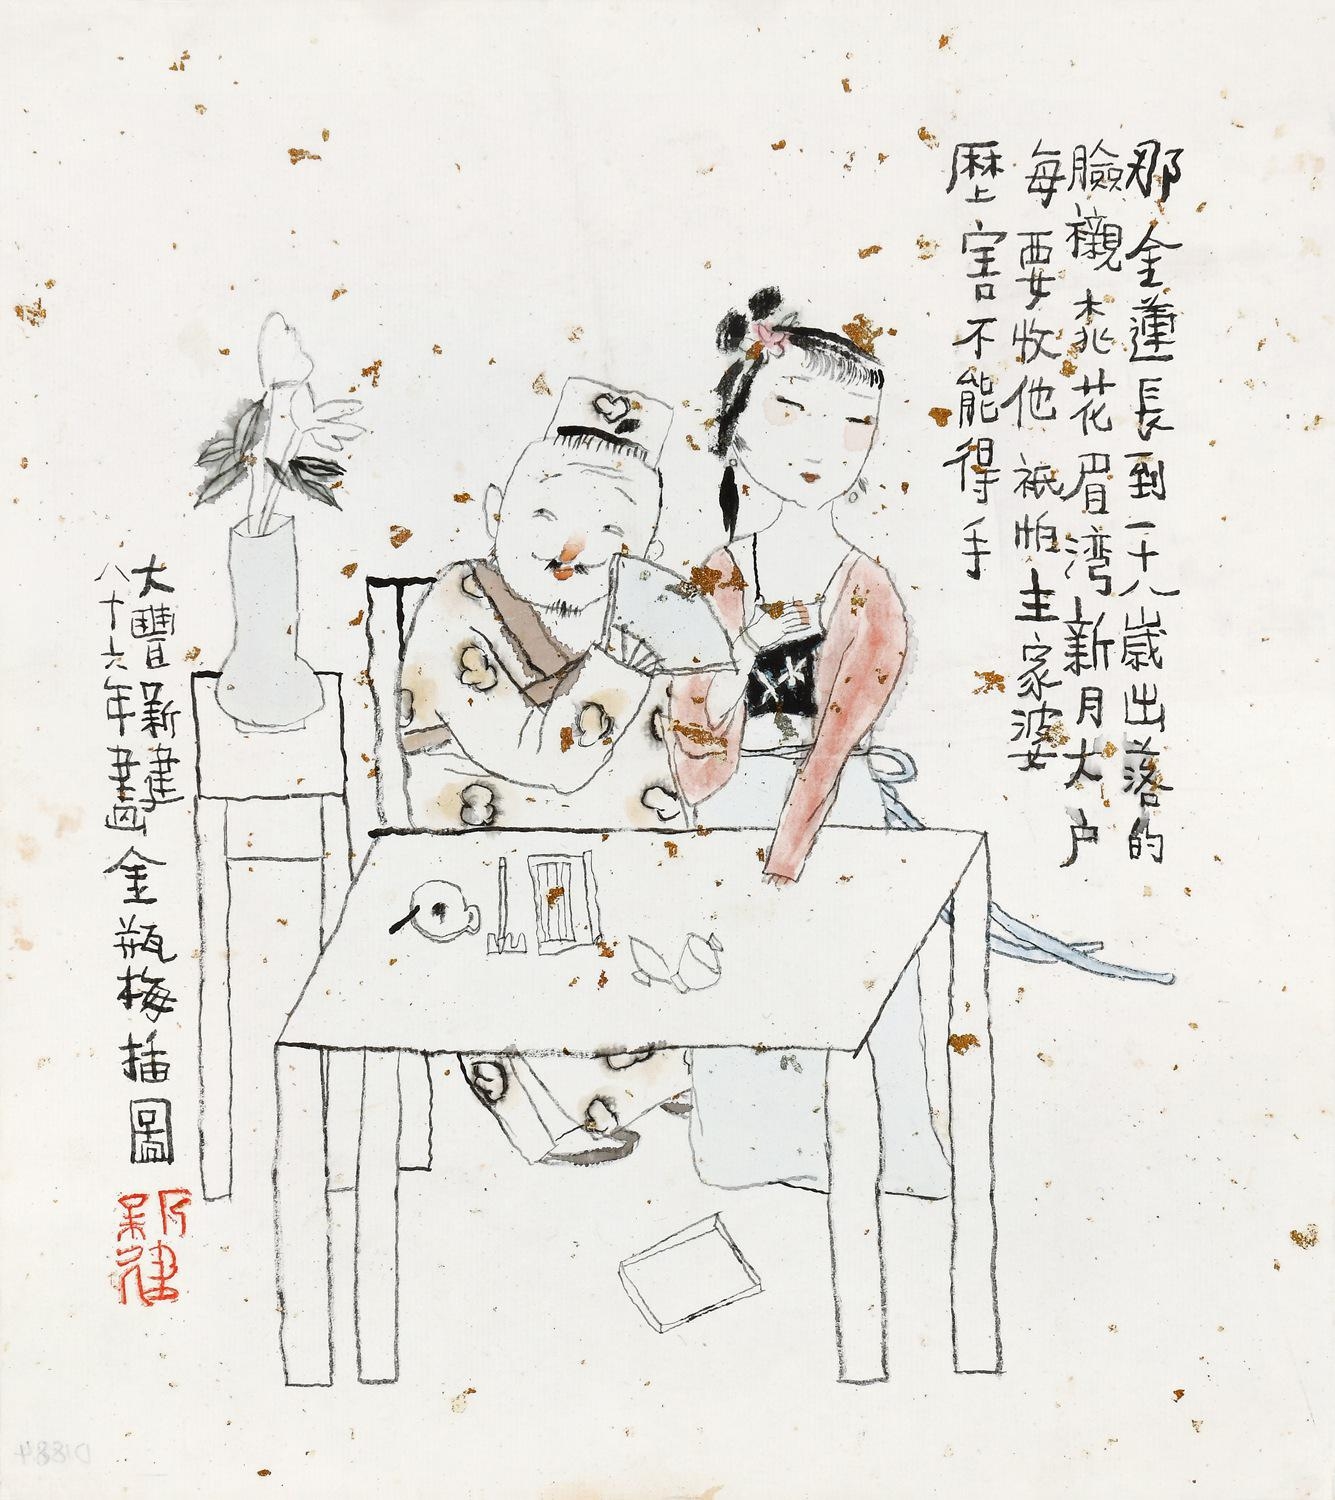 那金蓮長到一十八歲出落的
臉襯桃花眉湾新月大户
每要收他衹怕主家婆
歷害不能得手
大豐新建
八十六年畫金瓶梅插圖
新建
D1884